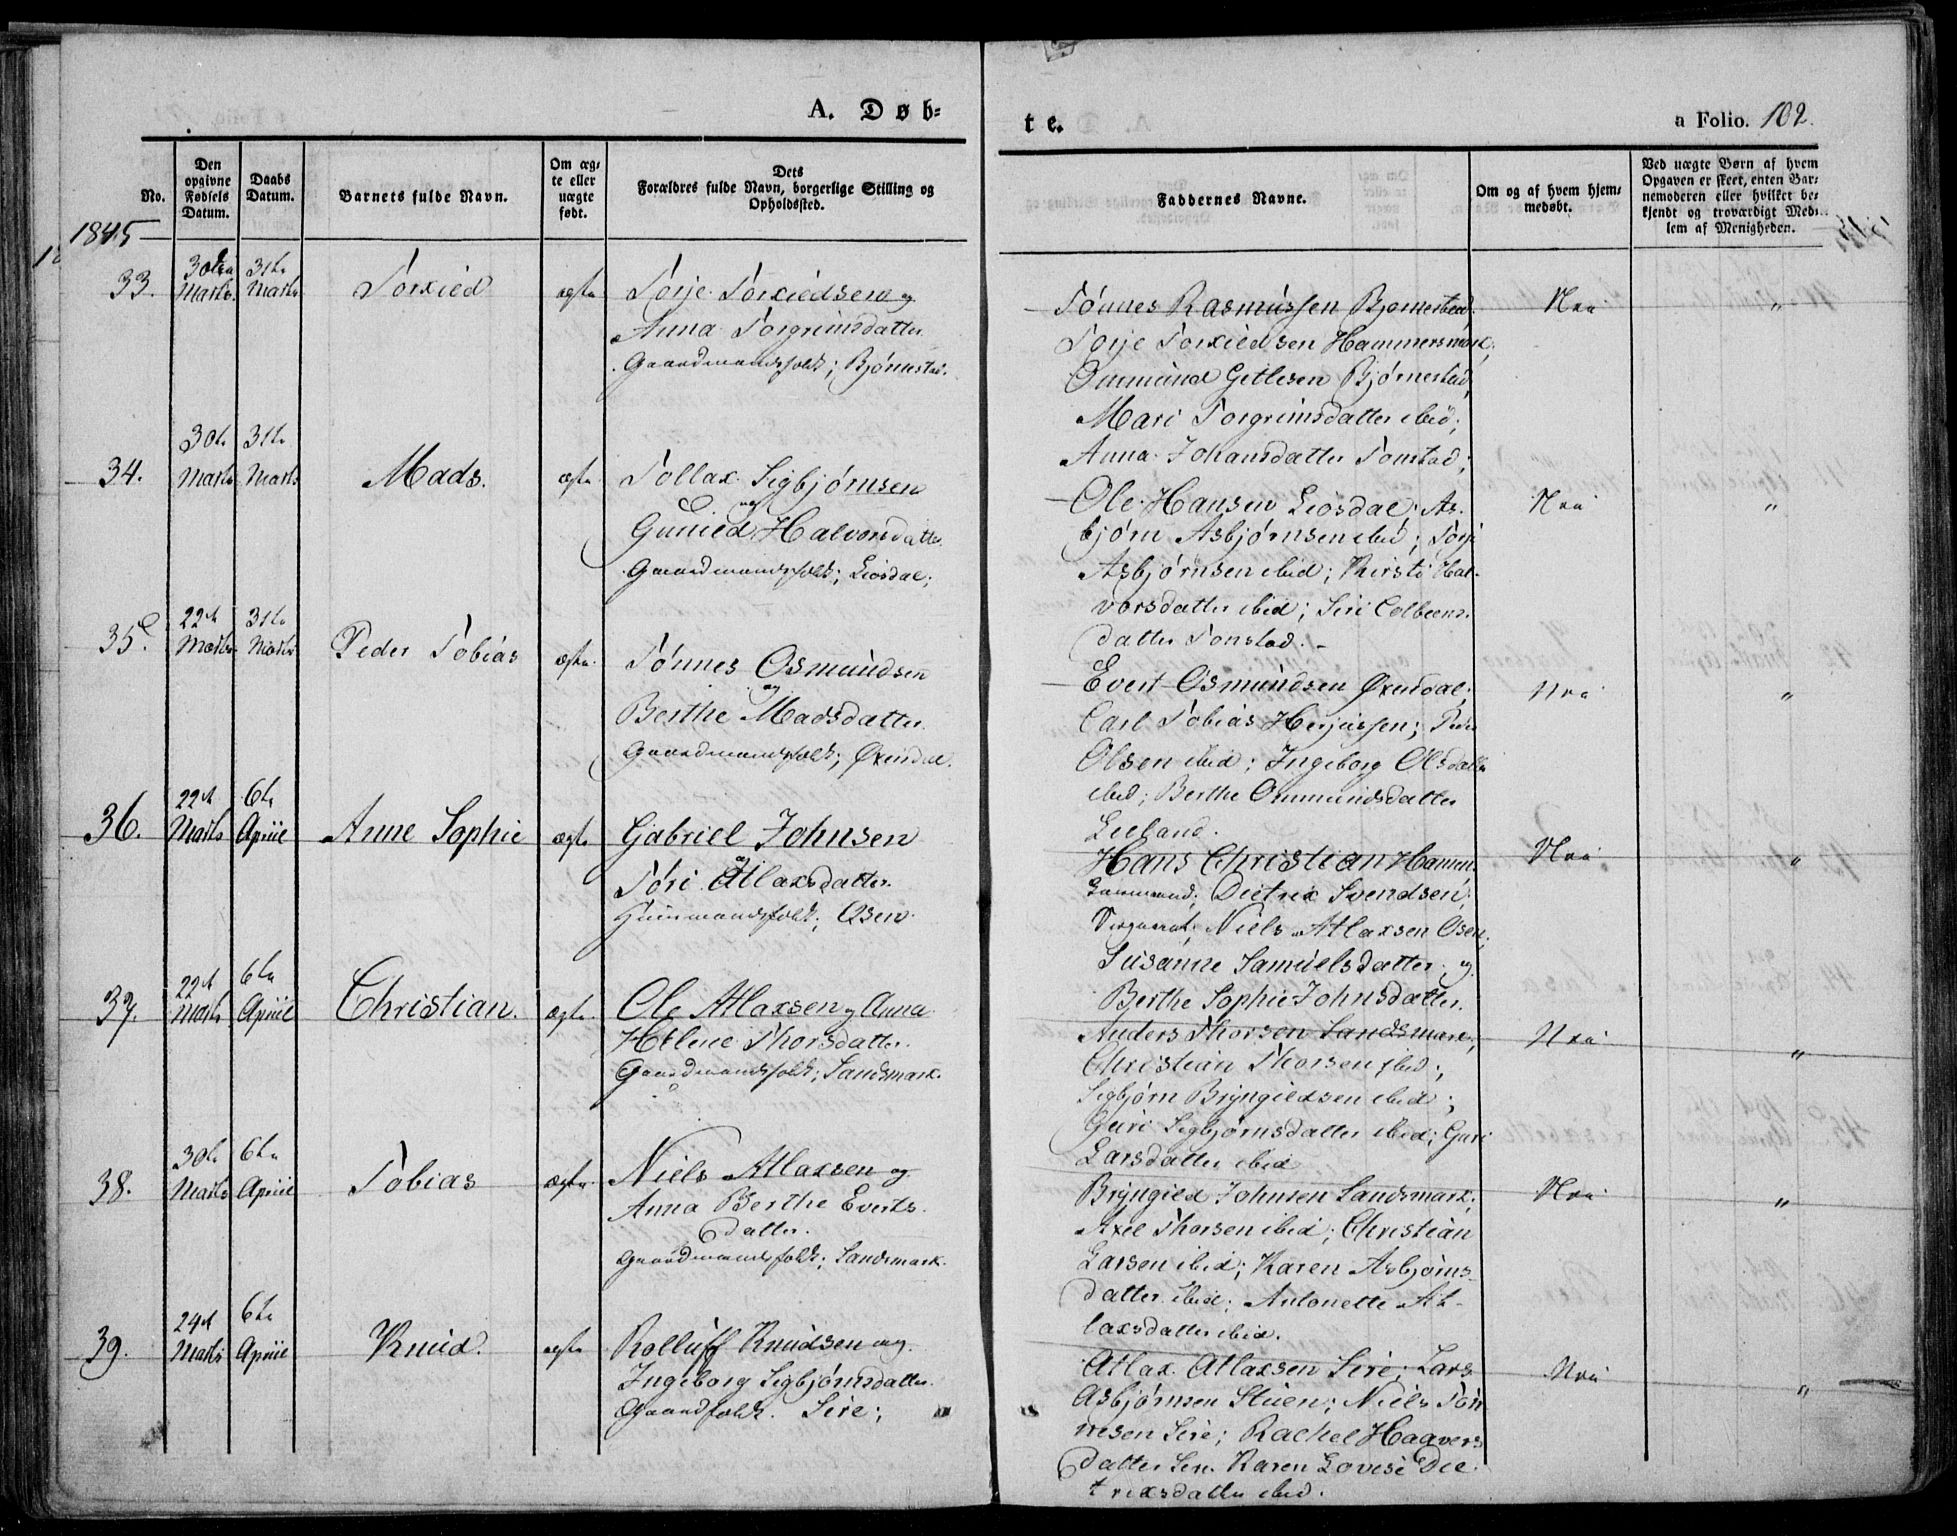 A. Døb=
te.
a Folio. 102.
No.
Den opgivne Fødsels Datum.
Daabs Datum.
Barnets fulde Navn.
Om æg=
te eller
uægte
født.
Dets
Forældres fulde Navn, borgerlige Stilling og
Opholdssted.
Faddernes Navne.
Om og af hvem hjem=
medøbt.
Ved uægte Børn af hvem
Opgaven er skeet, enten Bar=
nemoderen eller hvilket be=
kjendt og troværdigt Med=
lem af Menigheden.
1845
33. 30te Marts. 31te Marts Torkild ægte
Tørje Torkildsen og
Anna Torgrimsdatter
Gaardmandsfolk; Bjørnestad.
Tønnes Rasmussen Bjørnestad;
Tørje Torkildsen Hammersmark;
Ommund Getlesen Bjørnestad,
Mari Torgrimsdatter ibid;
Anna Johansdatter Tonstad;
Nei "
34. 30te Marts 31te Marts Mads. ægte
Tollak Sigbjørnsen
og
Gunild Halvorsdatter
Gaardmandsfolk; Liosdal;
Ole Hansen Liosdal; As-
bjørn Asbjørnsen ibid; Tørje
Asbjørnsen ibid; Kirsti Hal-
vorsdatter ibid; Siri Colbeens-
datter Tonstad.
Nei "
35. 22de Marts 31te Marts Peder Tobias ægte
Tønnes Osmundsen
og
Berthe Madsdatter
Gaardmandsfolk; Øxendal.
Evert Osmundsen Øxendal;
Carl Tobias Herjussen; Peder
Olsen ibid; Ingeborg Olsdatter
ibid; Berthe Ommundsdatter
Leeland.
Nei "
36. 22de Marts 6te April Anne Sophie ægte
Gabriel Johnsen
og
Tøri Atlaksdatter.
Huusmandsfolk; Osen.
Hans Christian Hansen,
Dietrik Svendsen;
Niels Atlaksen Osen;
Susanne Samuelsdatter; og
Berthe Sophie Johnsdatter.
Nei "
37. 22de Marts 6te April Christian. ægte
Ole Atlaksen og Anna
Helene Thorsdatter.
Gaardmandsfolk; Landsmark.
Anders Thorsen Landsmark;
Christian Thorsen ibid;
Sigbjørn Bryngildsen ibid;
Guri Sigbjørnsdatter ibid; Guri
Larsdatter ibid
Nei "
38. 30te Marts 6te April Tobias ægte
Niels Atlaksen og
Anna Berthe Everts-
datter.
Gaardmandsfolk; Landsmark.
Bryngild Johnsen Landsmark;
Axel Thorsen ibid; Christian
Larsen ibid; Karen Asbjørns-
datter ibid; Antonette At-
laksdatter ibid.
Nei "
39. 24de Marts 6te April Knud. ægte
Rolluff Knudsen og
Ingeborg Sigbjørnsdatter.
Gaardfolk. Sire;
Atlak Atlaksen Sire; Lars
Asbjørnsen Stuen; Niels Tøn-
nesen Sire; Rachel Haavers
datter Sire. Karen Lovise Die-
triksdatter ibid.
Nei "